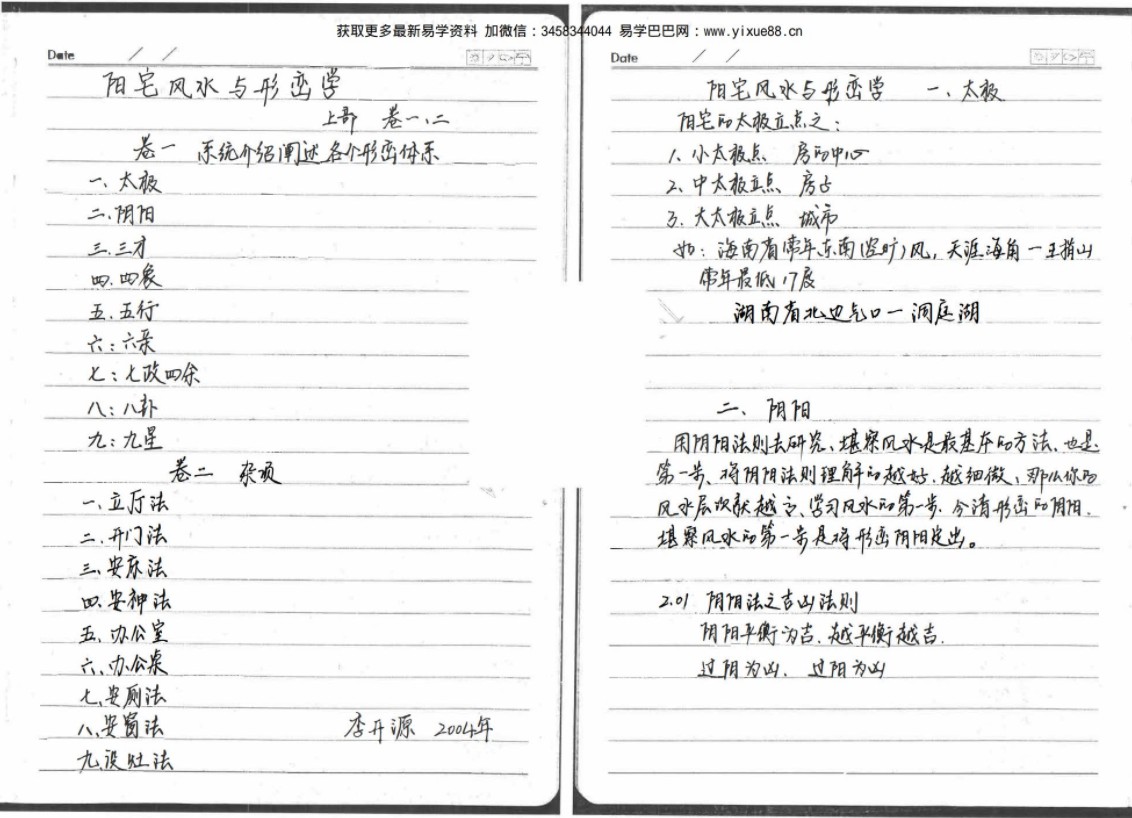 获取更多最新易学资料 加微信：3458344044 易学巴巴网：www.yixue88.cn
Date / /
阳宅风水与形峦学
上部 卷一、二
卷一 系统介绍阐述各个形峦体系
一、太极
二.阴阳
三.三才
四.四象
五.五行
六：六亲
七：七政四余
八：八卦
九：九星
卷二 杂项
一.立厅法
二.开门法
三.安床法
四.安神法
五.办公室
六、办公桌
七.安厕法
八.安窗法
李开源 2004年
九.设灶法
Date / /
阳宅风水与形峦学 一、太极
阳宅的太极立点之：
1、小太极点 房的中心
2、中太极立点 房占
3、大太极立点 城市
如：海南省常年东南(空旷)风，天涯海角一王指山
常年最低17度
湖南省北边气口一洞庭湖
二、阴阳
用阴阳法则去研究、堪察风水是最基本的方法、也是
第一步、将阴阳法则理解的越好.越细微、那么你的
风水层次就越高、学习风水的第一步.分清形峦的阴阳.
堪察风水的第一步是将形峦阴阳定出。
2.01 阴阳法之吉凶法则
阴阳平衡为吉.越平衡越吉.
过阴为凶、过阳为凶